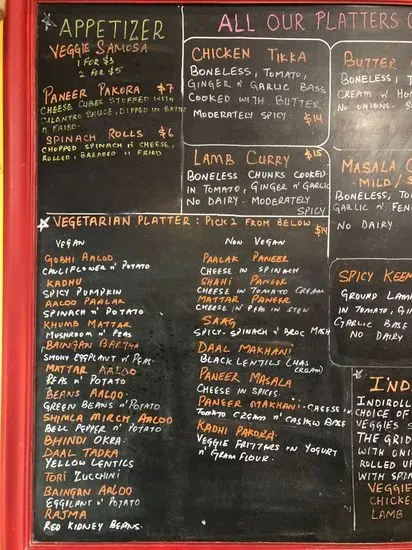 APPETIZER
VEGGIE SAMOSA
1 FOR $3
2 FOR $5
PANEER PAKORA $7
CHEESE CUBES STUFFED WITH
CILANTRO SAUCE, DIPPED IN BATTER
N' FRIED.
SPINACH ROLLS $6
CHOPPED SPINACH N' CHEESE,
ROLLED, BREADED N' FRIED
ALL OUR PLATTERS
CHICKEN TIKKA
BONELESS, TOMATO,
GINGER N' GARLIC BASE
COOKED WITH BUTTER
MODERATELY SPICY $14
LAMB CURRY $15
BONELESS CHUNKS COOKED
IN TOMATO, GINGER N' GARLIC
NO DAIRY. MODERATELY
SPICY
BUTTER
BONELESS,
CREAM N'
NO ONIONS.
MASALA
MILD/
BONELESS,
GARLIC N'
NO DAIRY
SPICY KEE
GROUND LAM
IN TOMATO,
GARLIC BASE
NO DAIRY
IND
INDIROLL
CHOICE OF
VEGGIES
THE GRID
WITH ONI
ROLLED U
WITH SPIN
VEGGIE
CHICKE
LAMB
VEGETARIAN PLATTER: PICK 2 FROM BELOW $14
VEGAN
GOBHI AALOO
CAULIFLOWER N' POTATO
KADHU
SPICY PUMPKIN
AALOO PAALAK
SPINACH N' POTATO
KHUMB MATTAR
MUSHROOM N' PEAS
BAINGAN BARTHA
SMOKY EGGPLANT N' PEAS
MATTAR AALOO
PEAS N' POTATO
BEANS AALOO
GREEN BEANS N' POTATO
SHIMLA MIRCH AALOO
BELL PEPPER N' POTATO
BHINDI OKRA
DAAL TADKA
YELLOW LENTICS
TORI ZUCCHINI
BAINGAN AALOO
EGGPLANT N' POTATO
RAJMA
RED KIDNEY BEANS.
NON VEGAN
PAALAK PANEER
CHEESE IN SPINACH
SHAHI PANEER
CHEESE IN TOMATO CREAM
MATTAR PANEER
CHEESE N' PEAS IN STEW
SAAG
SPICY SPINACH N' BROC MASH
DAAL MAKHANI
BLACK LENTILS (HAS
CREAM)
PANEER MASALA
CHEESE IN SPICES
PANEER MAKHANI - CHEESE IN
TOMATO CREAM N' CASHEW BASE
KADHI PAKORA
VEGGIE FRITTERS IN YOGURT
N' GRAM FLOUR.